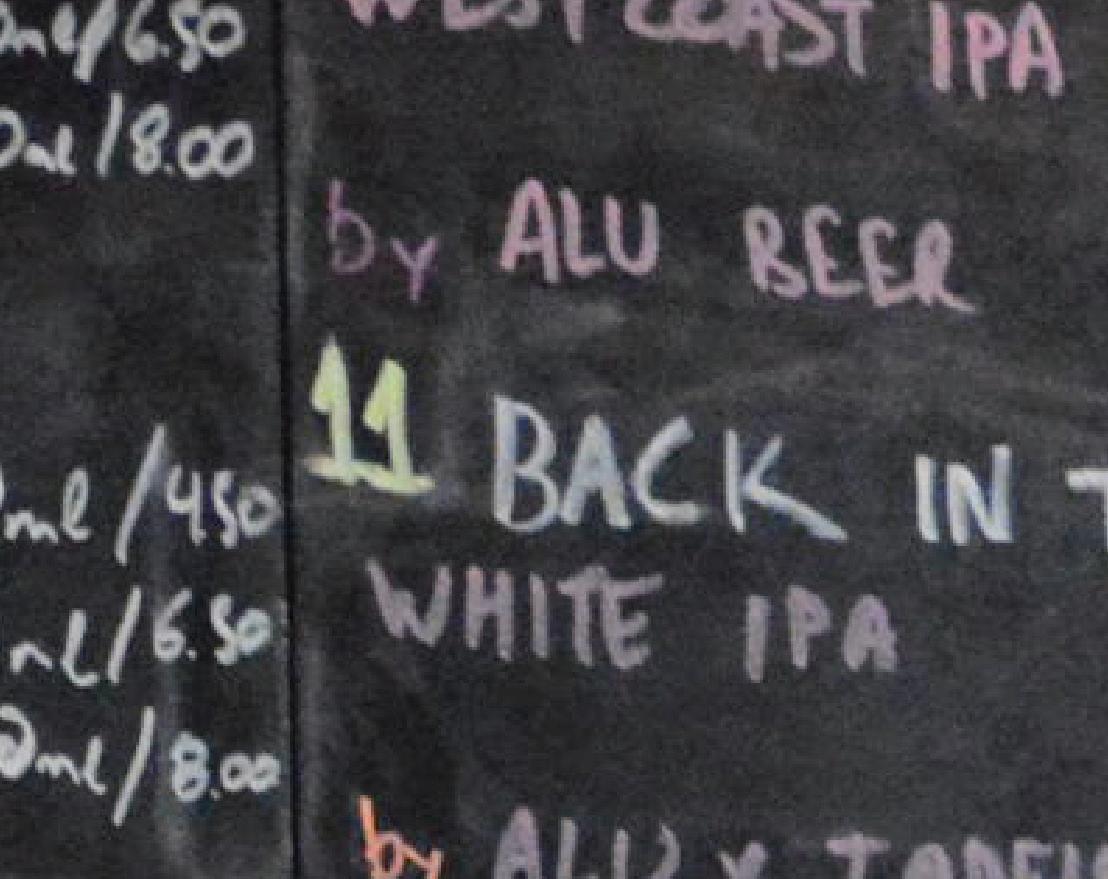 /6.50
/8.00
ml/4.50
ml/6.50
ml/8.00
WEST COAST IPA
by ALU BEER
11 BACK IN
WHITE IPA
by